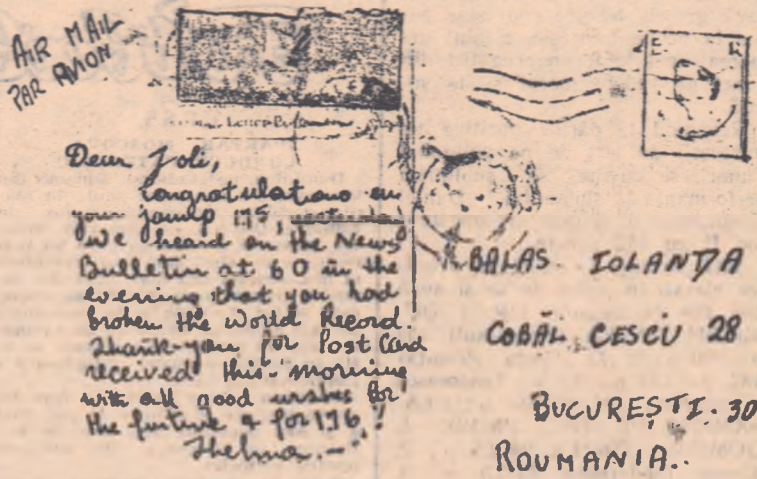 AIR MAIL
PAR AVION
E R
Dear Joli,
Congratulations on
your jump 175, yesterday
we heard on the News
Bulletin at 6 0 in the
evening that you had
broken the World Record.
Thank-you for Post Card
received this morning,
with all good wishes for
the future & for 176!
Thelma.-
BALAS IOLANDA
COBĂLCESCU 28
BUCUREȘTI. 30
ROUMANIA..